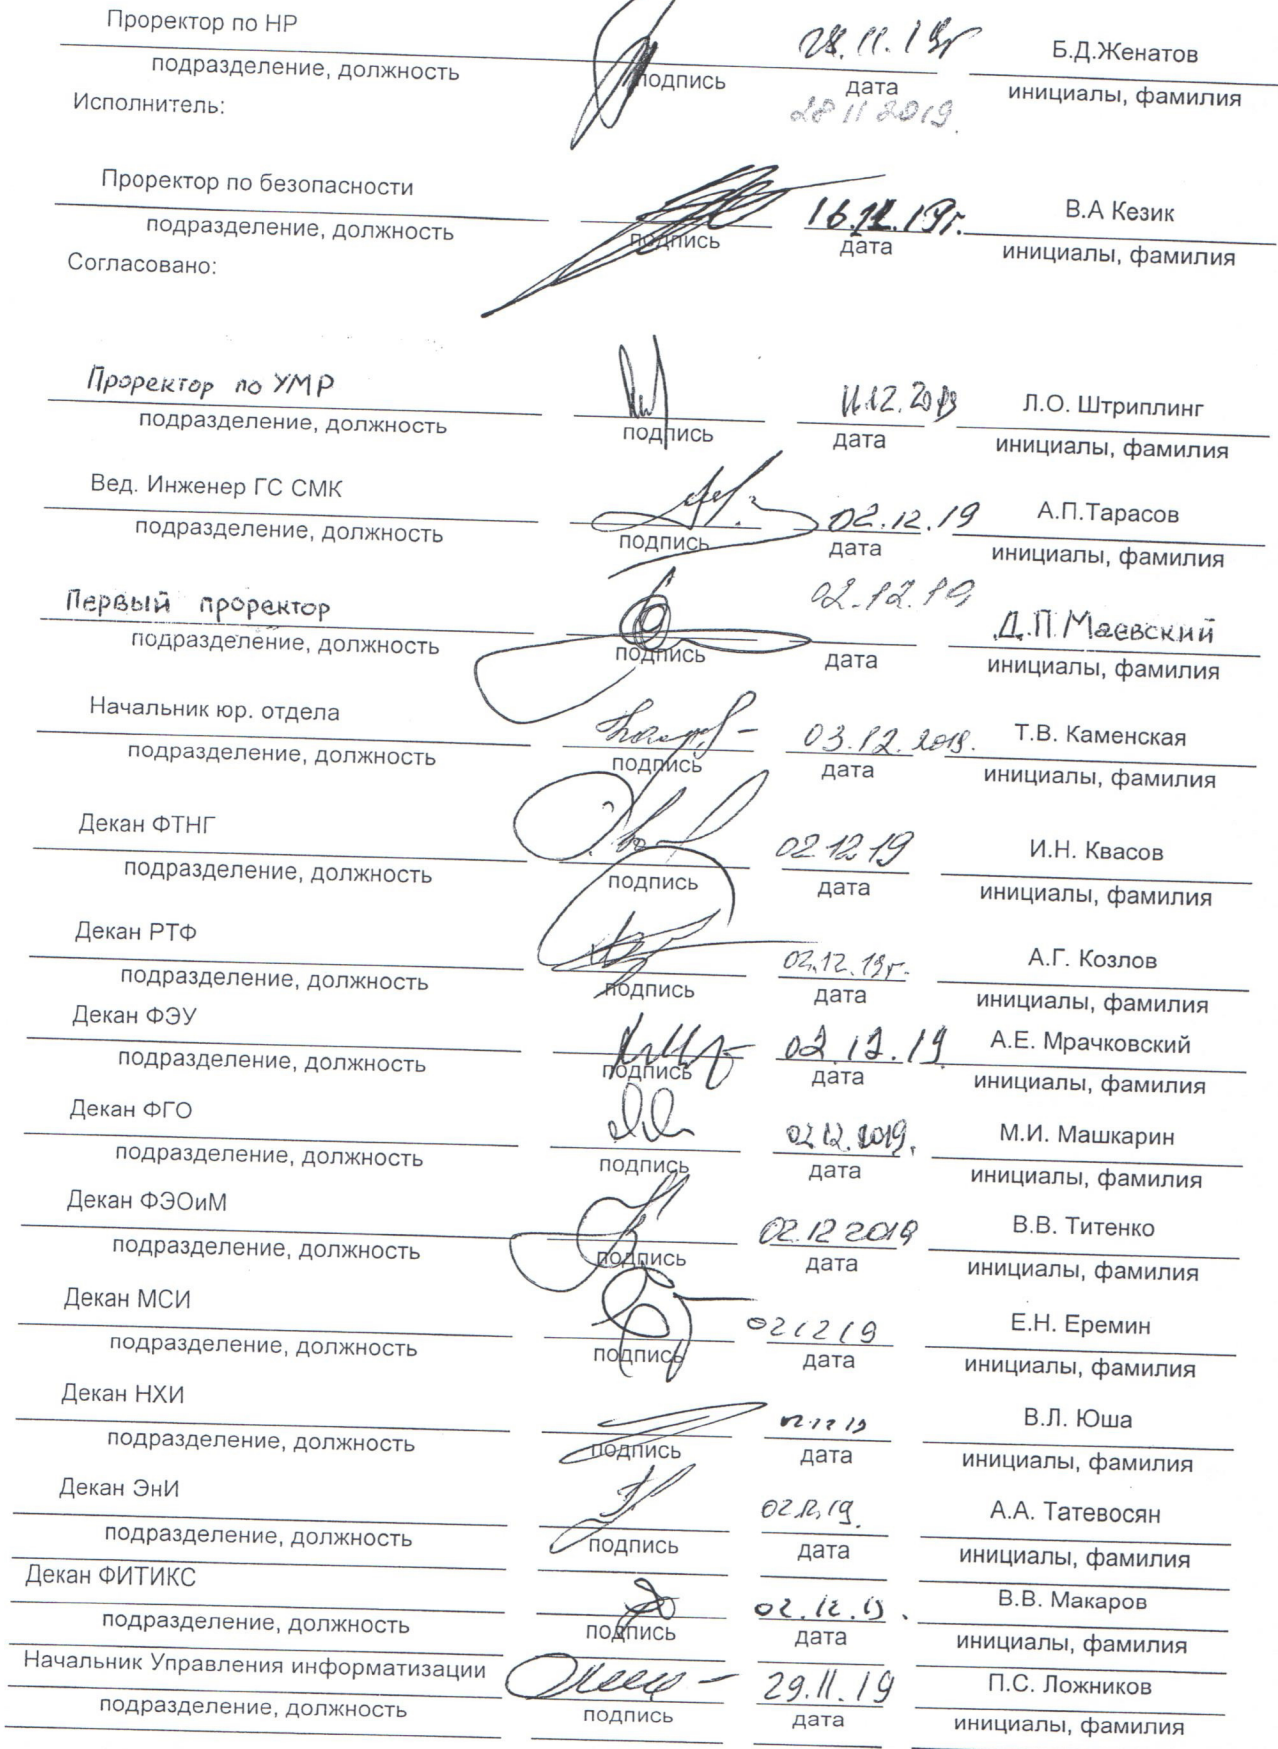 Проректор по НР 28.11.19г Б.Д.Женатов
подразделение, должность подпись дата инициалы, фамилия
28 11 2019.
Исполнитель:
Проректор по безопасности 16.12.19г. В.А Кезик
подразделение, должность подпись дата инициалы, фамилия
Согласовано:
Проректор по УМР 11.12.2019 Л.О. Штриплинг
подразделение, должность подпись дата инициалы, фамилия
Вед. Инженер ГС СМК 02.12.19 А.П.Тарасов
подразделение, должность подпись дата инициалы, фамилия
Первый проректор 02.12.19 Д.П.Маевский
подразделение, должность подпись дата инициалы, фамилия
Начальник юр. отдела 03.12.2019. Т.В. Каменская
подразделение, должность подпись дата инициалы, фамилия
Декан ФТНГ 02 12 19 И.Н. Квасов
подразделение, должность подпись дата инициалы, фамилия
Декан РТФ 02.12.19г. А.Г. Козлов
подразделение, должность подпись дата инициалы, фамилия
Декан ФЭУ 02.12.19 А.Е. Мрачковский
подразделение, должность подпись дата инициалы, фамилия
Декан ФГО 02.12.2019. М.И. Машкарин
подразделение, должность подпись дата инициалы, фамилия
Декан ФЭОиМ 02.12 2019 В.В. Титенко
подразделение, должность подпись дата инициалы, фамилия
Декан МСИ 021219 Е.Н. Еремин
подразделение, должность подпись дата инициалы, фамилия
Декан НХИ 02 12 19 В.Л. Юша
подразделение, должность подпись дата инициалы, фамилия
Декан ЭнИ 02.12.19. А.А. Татевосян
подразделение, должность подпись дата инициалы, фамилия
Декан ФИТИКС 02.12.19. В.В. Макаров
подразделение, должность подпись дата инициалы, фамилия
Начальник Управления информатизации 29.11.19 П.С. Ложников
подразделение, должность подпись дата инициалы, фамилия